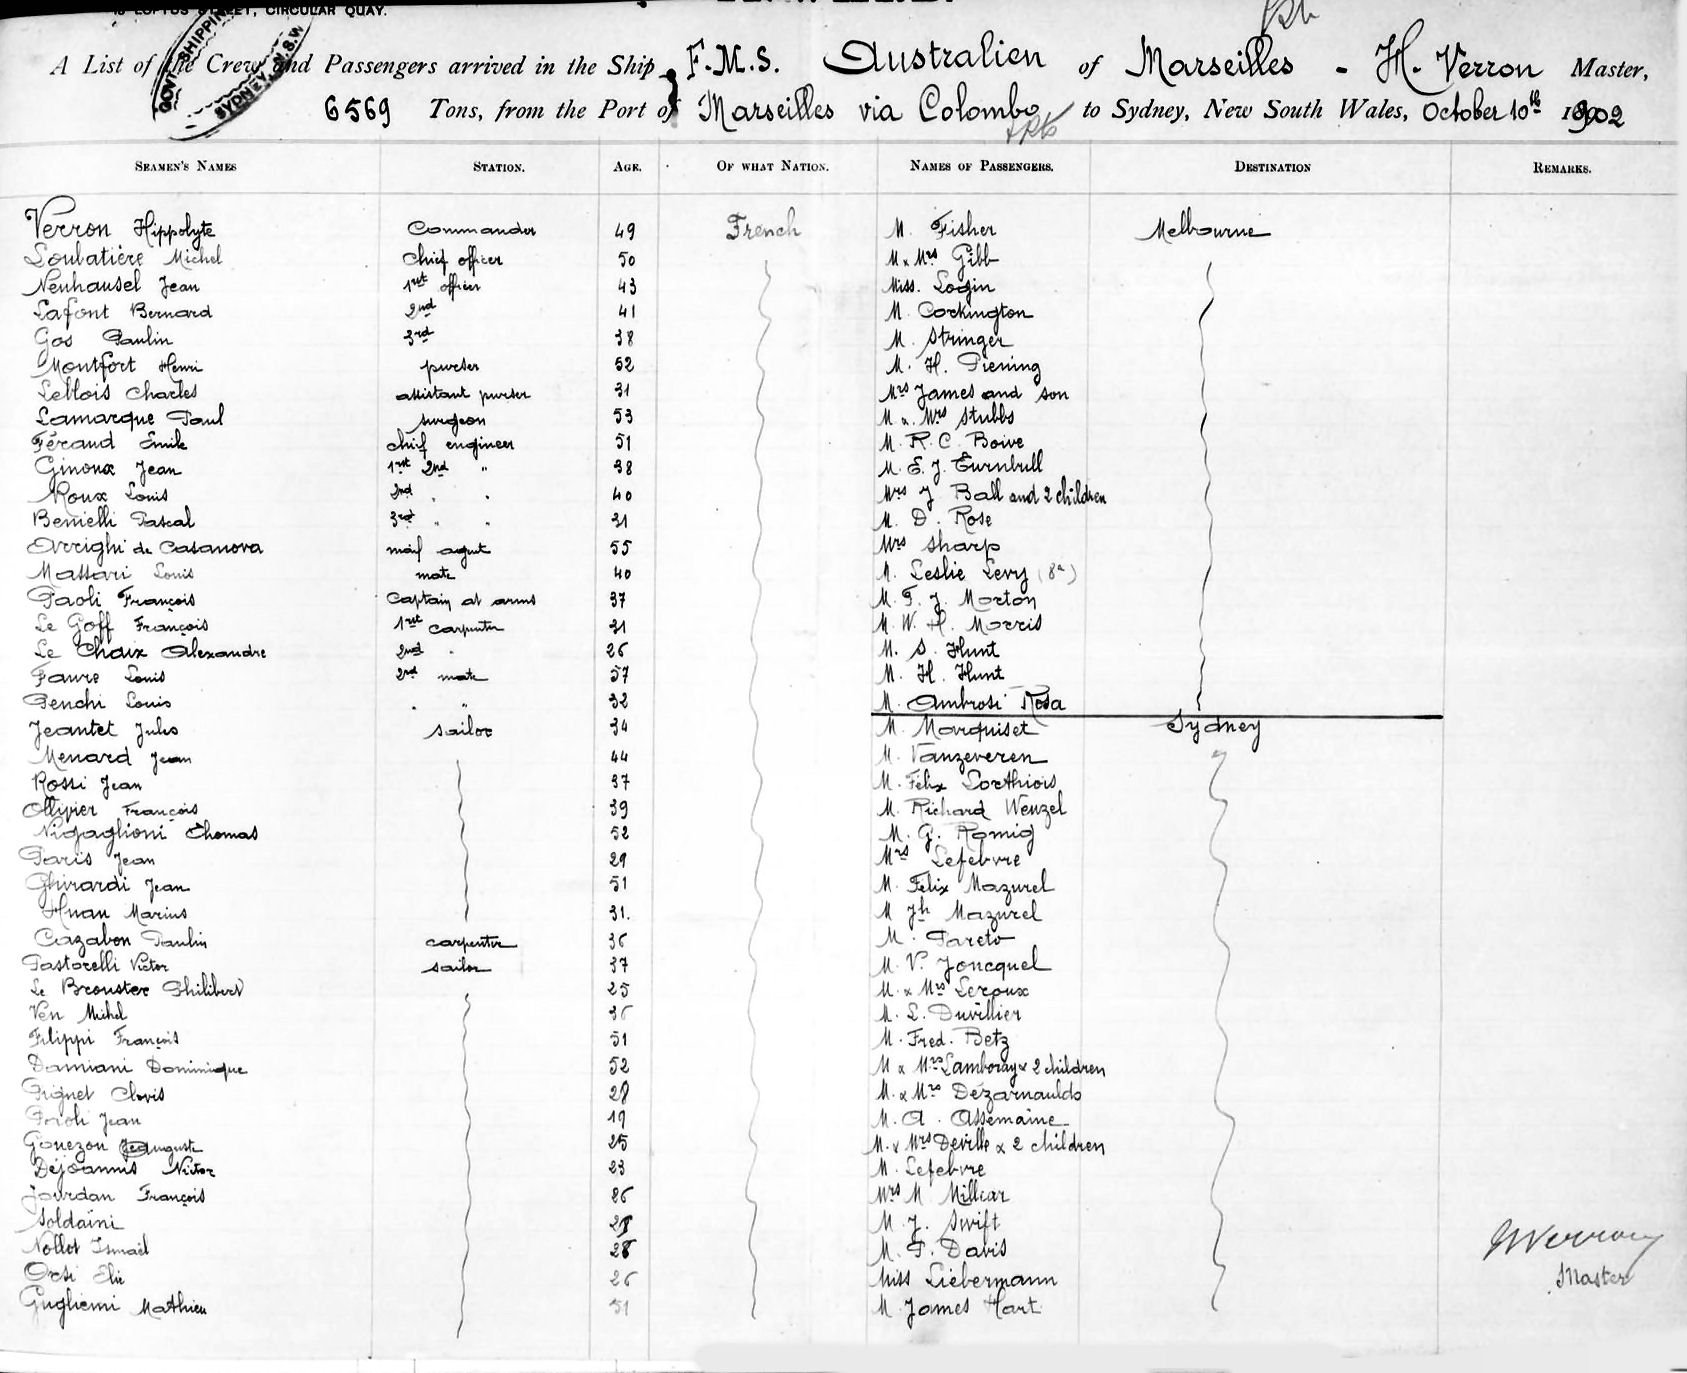 LOFTUS STREET, CIRCULAR QUAY.
GOVT SHIPPING
SYDNEY, N.S.W.
A List of the Crew and Passengers arrived in the Ship F.M.S. Australien of Marseilles - H. Verron Master,
6569 Tons, from the Port of Marseilles via Colombo to Sydney, New South Wales, October 10th 1902
SEAMEN'S NAMES STATION. AGE. OF WHAT NATION. NAMES OF PASSENGERS. DESTINATION REMARKS.
Verron Hippolyte Commander 49 French M. Fisher Melbourne
Loubatière Michel Chief officer 50 M & Mrs Gibb
Neuhausel Jean 1rst officer 43 Miss. Login
Lafont Bernard 2nd 41 M. Corkington
Gos Paulin 3rd 38 M. Stringer
Montfort Henri purser 52 M. H. Piening
Leblois Charles assistant purser 31 Mrs James and son
Lamarque Paul surgeon 53 M & Mrs Stubbs
Féraud Emile chief engineer 51 M. R. C. Boive
Ginoux Jean 1rst 2nd " 38 M. E. J. Turnbull
Roux Louis 2nd " " 40 Mrs J Ball and 2 children
Benielli Pascal 3rd " " 31 M. D. Rose
Arrighi de Casanova mail agent 55 Mrs Sharp
Massari Louis mate 40 M. Leslie Levy (8a)
Paoli François Captain at arms 37 M. F. J. Morton
Le Goff François 1rst carpenter 31 M. W. H. Morris
Le Choix Alexandre 2nd " 26 M. S. Hunt
Faure Louis 2nd mate 57 M. H. Hunt
Penchi Louis " " 32 M. Ambrosi Rosa
Jeantet Jules sailor 34 M. Marquiset Sydney
Menard Jean 44 M. Vanzeveren
Rossi Jean 37 M. Félix Lorthiois
Ollivier François 39 M. Richard Wenzel
Nigaglioni Thomas 52 M. G. Romig
Paris Jean 29 Mrs Lefebvre
Ghirardi Jean 51 M. Felix Mazurel
Huan Marius 31. M Jh Mazurel
Cazabon Paulin carpenter 36 M. Pareto
Pastorelli Victor sailor 37 M. V. Joncquel
Le Brouster Philibert 25 M. & Mrs Leroux
Ven Michel 36 M. L. Duvillier
Filippi François 51 M. Fred. Betz
Damiani Dominique 52 M & Mrs Lamboray & 2 children
Pignet Clovis 28 M. & Mrs Dézarnaulds
Paoli Jean 19 M. A. Assemaine
Gonezon Auguste 25 M. & Mrs Deville & 2 children
Déjoannis Victor 23 M. Lefebvre
Jourdan François 26 Mrs M Millear
Soldaini 28 M. J. Swift
Nollot Ismaël 28 M. F. Davis
Orsi Elie 26 Miss Liebermann
Gugliemi Mathieu 51 M. James Hart
HVerron
Master